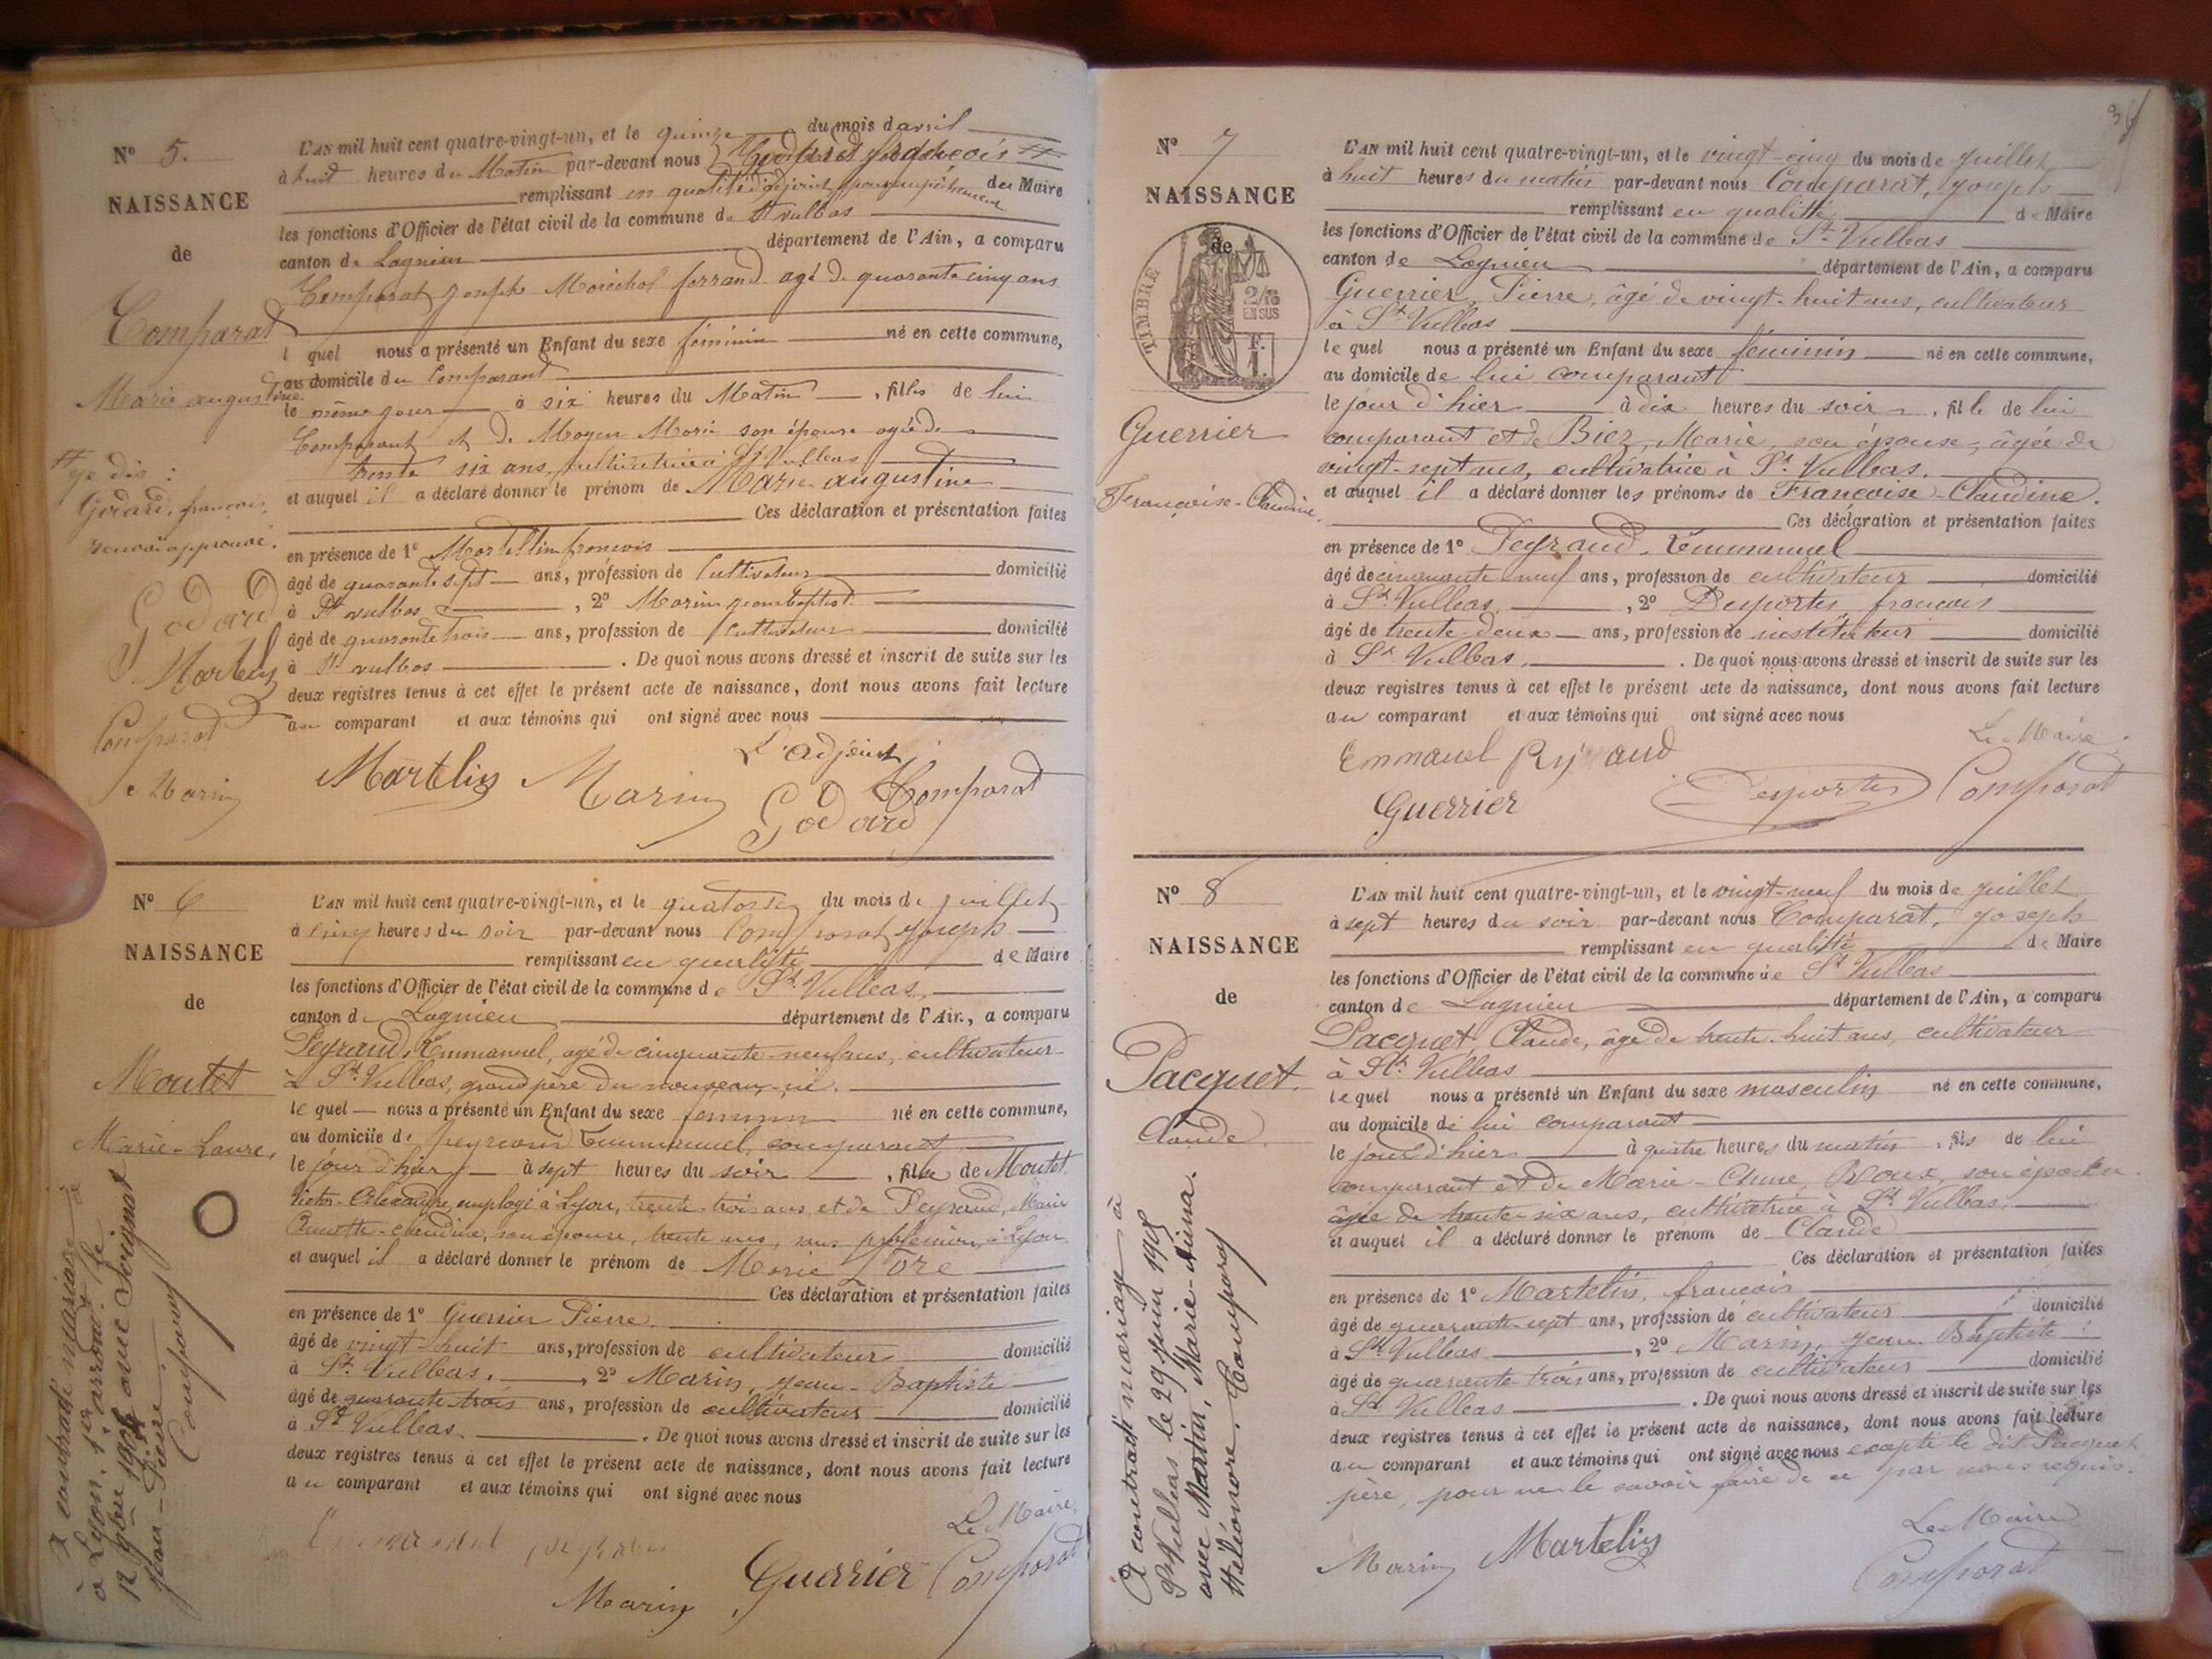 N° 5.
NAISSANCE
de
Comparat
Marie augustine
je dis :
Godard, francois,
renvoi approuvé.
Godard
Martelin
Comparat
Marin
L'AN mil huit cent quatre-vingt-un, et le quinze du mois d avril
à huit heures du Matin par-devant nous francois
remplissant en qualité d'adjoint pour empêchement du Maire
les fonctions d'Officier de l'état civil de la commune de St vulbas
canton de Lagnieu département de l'Ain, a comparu
Comparat joseph Maréchal ferrand agé de quarante cinq ans
lequel nous a présenté un Enfant du sexe féminin né en cette commune,
au domicile du Comparant
le même jour à six heures du Matin, fille de lui
Comparant et de Moyen Marie son épouse agée de
trente six ans, cultivatrice à St Vulbas
et auquel il a déclaré donner le prénom de Marie augustine
Ces déclaration et présentation faites
en présence de 1° Martellin francois
âgé de quarante sept ans, profession de Cultivateur domicilié
à St vulbas, 2° Marin jean baptist
âgé de quarante trois ans, profession de Cultivateur domicilié
à St vulbas. De quoi nous avons dressé et inscrit de suite sur les
deux registres tenus à cet effet le présent acte de naissance, dont nous avons fait lecture
au comparant et aux témoins qui ont signé avec nous
L'adjoint
Martelin Marin Godard Comparat
N° 6
NAISSANCE
de
Moutet
Marie-Laure,
A contracté mariage
à Lyon, 1er arrondt le
12 9bre 1904 avec Seignat
Jean-Pierre.
Comparat
L'AN mil huit cent quatre-vingt-un, et le quatorze du mois de juillet
à cinq heures du soir par-devant nous Comparat joseph
remplissant en qualité de Maire
les fonctions d'Officier de l'état civil de la commune de St. Vulbas
canton de Lagnieu département de l'Ain, a comparu
Peyraud, Emmanuel, agé de cinquante-neuf ans, cultivateur
à St. Vulbas, grand père du nouveau-né.
lequel nous a présenté un Enfant du sexe feminin né en cette commune,
au domicile de peyraud Emmanuel, comparant
le jour d'hier à sept heures du soir, fille de Moutet
Victor-Alexandre, employé à Lyon, trente-trois ans, et de Peyraud, Marie
claudine, son épouse, trente ans, sans profession, à Lyon
et auquel il a déclaré donner le prénom de Marie Lore
Ces déclaration et présentation faites
en présence de 1° Guerrier Pierre
âgé de vingt-huit ans, profession de cultivateur domicilié
à St. Vulbas., 2° Marin, jean-Baptiste
âgé de quarante-trois ans, profession de cultivateur domicilié
à St Vulbas. De quoi nous avons dressé et inscrit de suite sur les
deux registres tenus à cet effet le présent acte de naissance, dont nous avons fait lecture
au comparant et aux témoins qui ont signé avec nous
Le Maire,
Marin Guerrier Comparat
N° 7
NAISSANCE
de
TIMBRE
2/10
EN SUS
F.
1.
Guerrier
Françoise-Claudine.
L'AN mil huit cent quatre-vingt-un, et le vingt-cinq du mois de juillet
à huit heures du matin par-devant nous Comparat, joseph
remplissant en qualité de Maire
les fonctions d'Officier de l'état civil de la commune de St. Vulbas
canton de Lagnieu département de l'Ain, a comparu
Guerrier, Pierre, âgé de vingt-huit ans, cultivateur
à St Vulbas
lequel nous a présenté un Enfant du sexe féminin né en cette commune,
au domicile de lui comparant
le jour d'hier à dix heures du soir, fille de lui
comparant et de Biez, Marie, son épouse, âgée de
vingt-sept ans, cultivatrice à St. Vulbas.
et auquel il a déclaré donner les prénoms de Françoise-Claudine.
Ces déclaration et présentation faites
en présence de 1° Peyraud, Emmanuel
âgé de cinquante neuf ans, profession de cultivateur domicilié
à St. Vulbas, 2° Desportes, francois
âgé de trente-deux ans, profession de instituteur domicilié
à St Vulbas. De quoi nous avons dressé et inscrit de suite sur les
deux registres tenus à cet effet le présent acte de naissance, dont nous avons fait lecture
au comparant et aux témoins qui ont signé avec nous
Le Maire.
Emmanuel
Guerrier Desportes Comparat
N° 8
NAISSANCE
de
Pacquet.
Claude.
A contracté mariage à
St Vulbas le 29 juin 1905
avec Martin, Marie-Anna.
Héléonore. Comparat
L'AN mil huit cent quatre-vingt-un, et le vingt-neuf du mois de juillet
à sept heures du soir par-devant nous Comparat, joseph
remplissant en qualité de Maire
les fonctions d'Officier de l'état civil de la commune de St Vulbas
canton de Lagnieu département de l'Ain, a comparu
Pacquet, Claude, âgé de trente-huit ans, cultivateur
à St. Vulbas
lequel nous a présenté un Enfant du sexe masculin né en cette commune,
au domicile de lui comparant
le jour d'hier à quatre heures du matin, fils de lui
comparant et de Marie-Anne, Roux, son épouse
âgée de trente-six ans, cultivatrice à St. Vulbas,
et auquel il a déclaré donner le prénom de Claude
Ces déclaration et présentation faites
en présence de 1° Martelin, francois
âgé de quarante-sept ans, profession de cultivateur domicilié
à St Vulbas, 2° Marin, jean Baptiste
âgé de quarante-trois ans, profession de cultivateur domicilié
à St Vulbas. De quoi nous avons dressé et inscrit de suite sur les
deux registres tenus à cet effet le présent acte de naissance, dont nous avons fait lecture
au comparant et aux témoins qui ont signé avec nous excepté le dit Pacquet
père, pour ne le savoir faire de ce par nous requis.
Le Maire
Marin Martelin Comparat